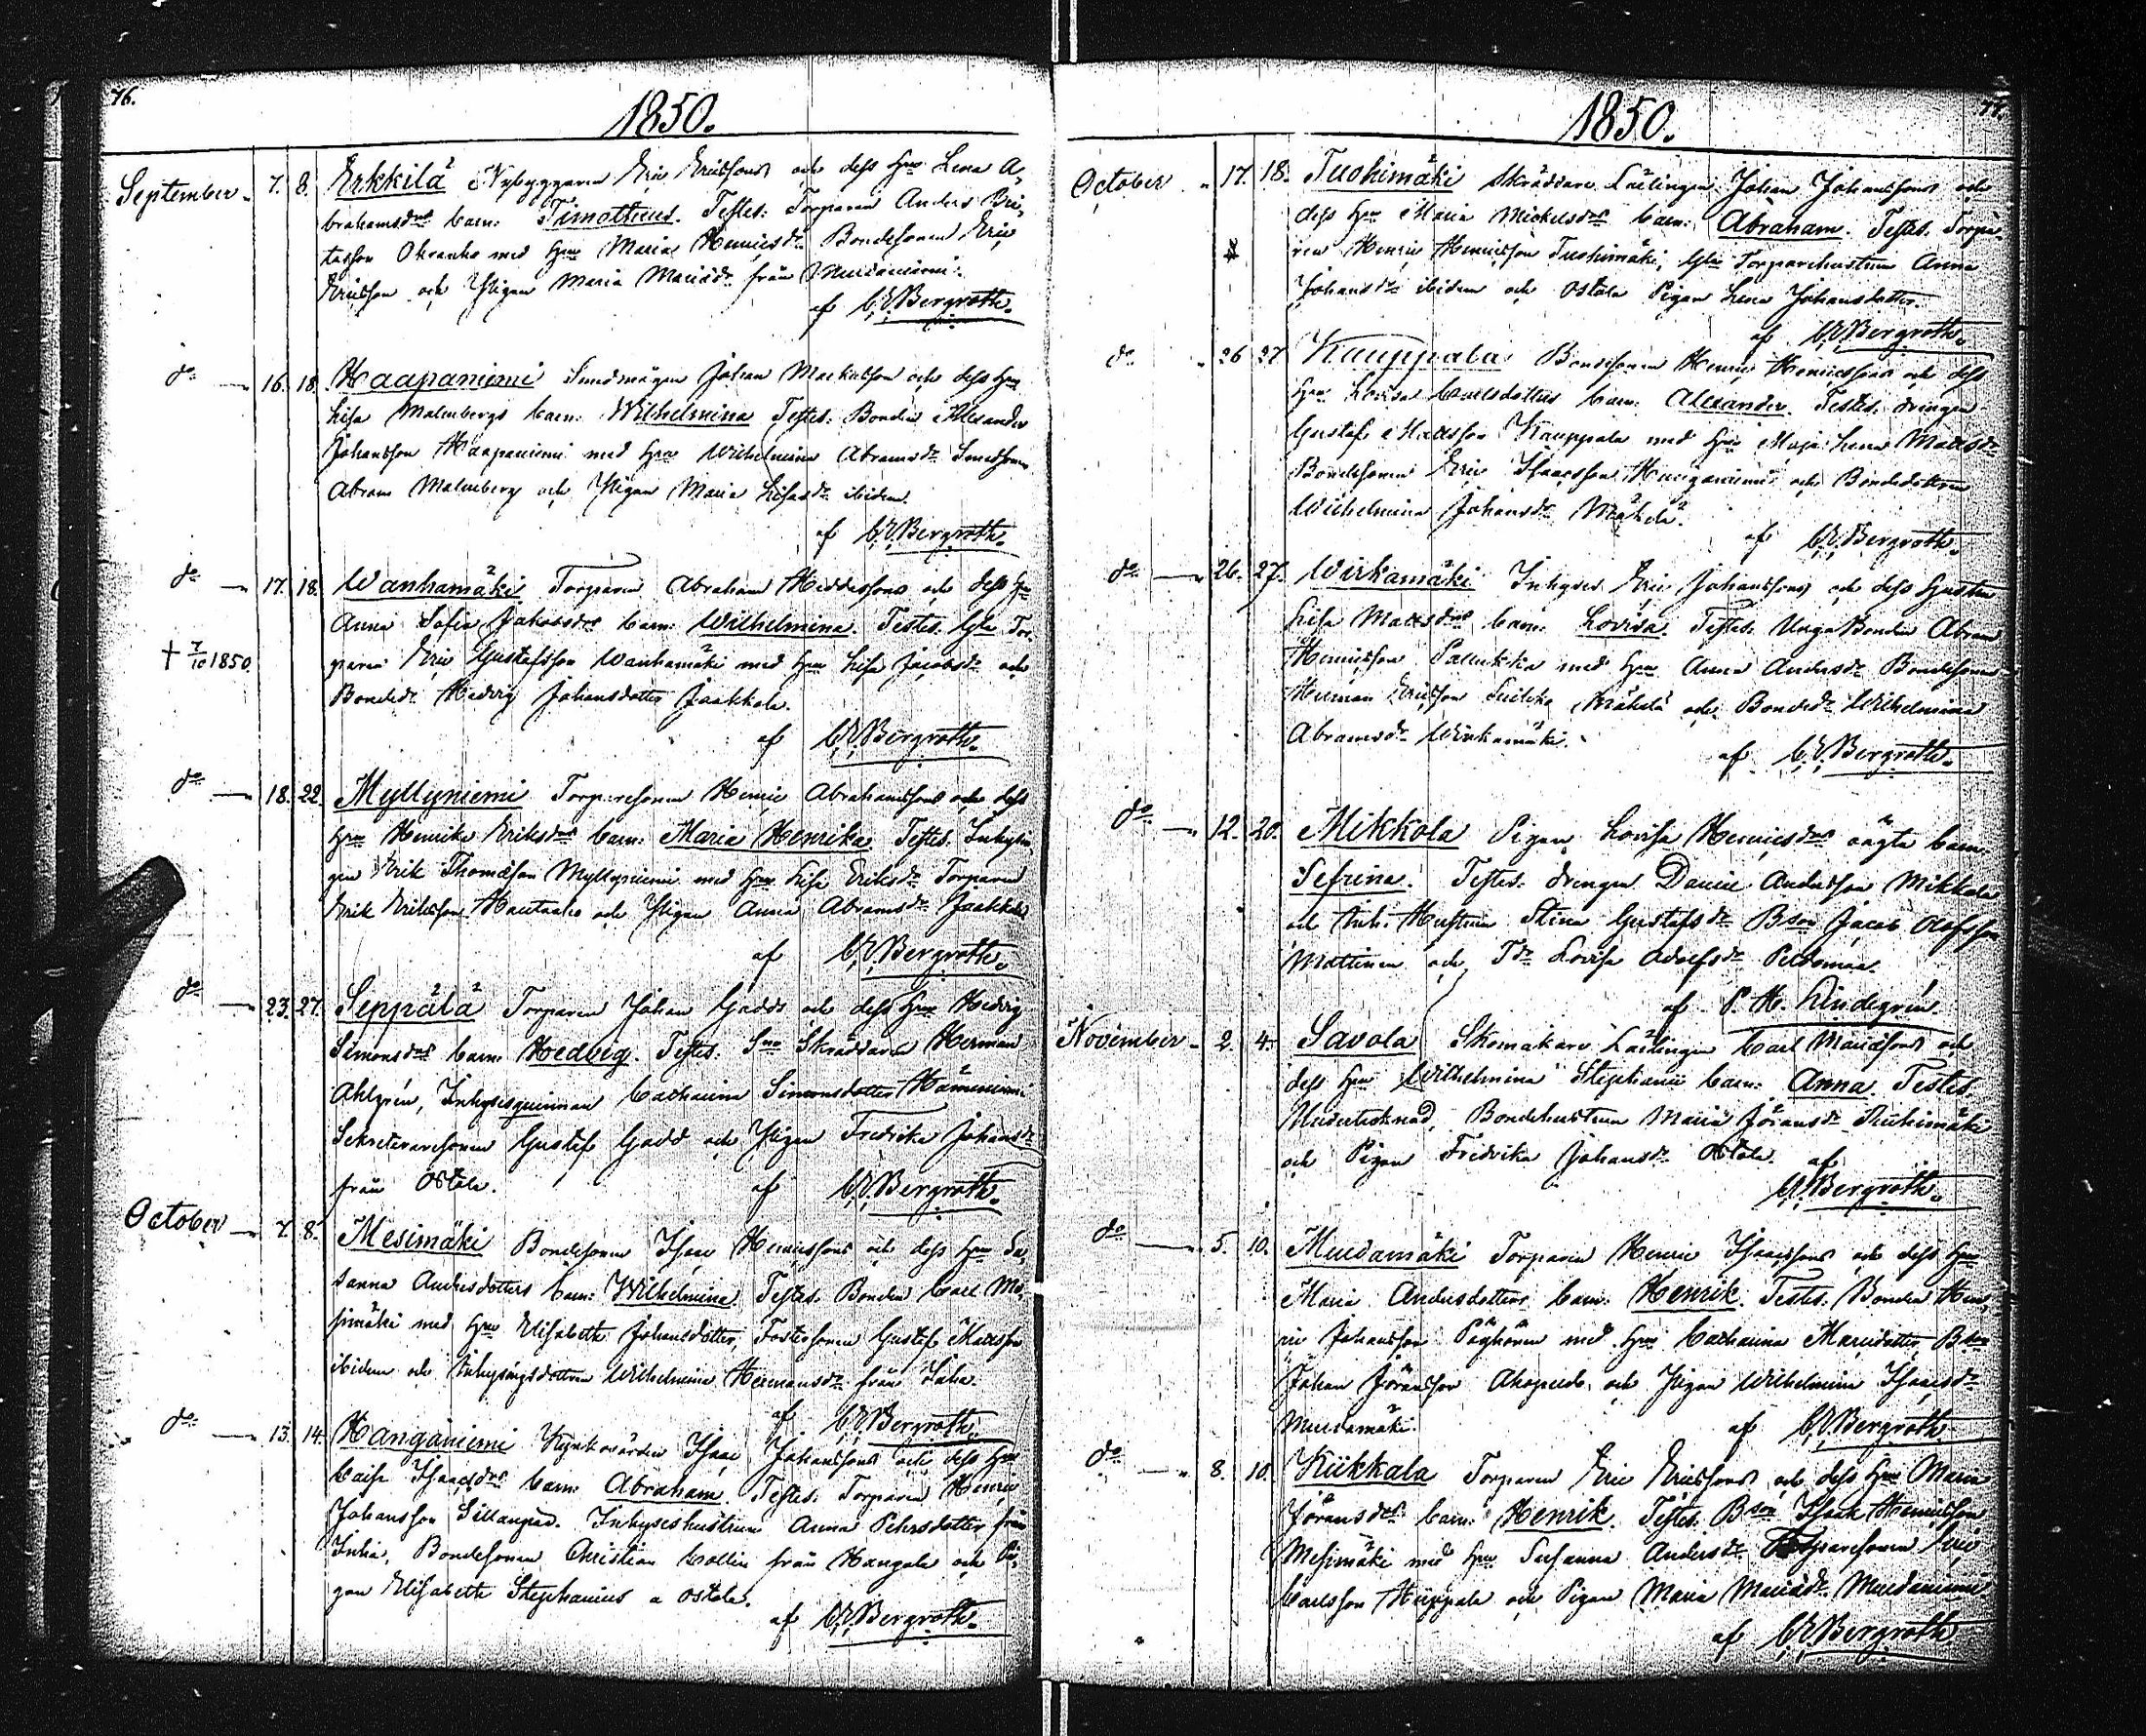 76.
1850.
September 7. 8. Erkkilä Nybyggaren Eric Ericssons och dess Hru Lena A,
brahamsdrs barn: Timotheus. Testes: Torparen Anders Bri,
tasson Okranko med Hru Maria Henricsdr Bondesonen Eric
Ericsson och Pigan Maria Mariædr från
af C.E. Bergroth.
do 16. 18. Haapaniemi Smedmågen Johan Markusson och dess Hru
Lisa Malmbergs barn: Wilhelmina Testes: Bonden Alexander
Johansson Haapaniemi med Hru Wilhelmina Abramsdr Smedsonen
Abram Malmberg och Pigan Maria Lisasdr ibidem.
af C.E. Bergroth.
do 17. 18. Wanhamäki Torparen Abraham och dess Hru
† 7/10 1850. Anna Sofia Jakobsdrs barn: Wilhelmina. Testes: Gla Tor,
paren Eric Gustafsson Wanhamäki med Hru Lisa Jacobsdr och
Bondedr Hedvig Johansdotter Jaakkola.
af C.E. Bergroth.
do 18. 22. Myllyniemi Torparesonen Henric Abrahamssons och dess
Hru Henrika Eriksdrs barn: Maria Henrika Testes: Inhysin,
gen Erik Thomasson Myllyniemi med Hru Lisa Eriksdr Torparen
Erik Eriksson Hautaaho och Pigan Anna Abramsdr Jaakkola
af C.E. Bergroth.
do 23. 27. Seppälä Torparen Johan Gadds och dess Hru Hedvig
Simonsdrs barn: Hedvig. Testes: Skräddaren Herman
Ahlgrén, Inhysesquinnan Catharina Simonsdotter Hämeniemi
Sekreteraresonen Gustaf Gadd och Pigan Fredrika Johansdr
från Ostola. af C.E. Bergroth.
October 7. 8. Mesimäki Bondesonen Isaac Henricssons och dess Hru Su,
sanna Andersdotters barn: Wilhelmina. Testes: Bonden Carl Me,
simäki med Hru Elisabeth Johansdotter, Fostersonen Gustaf Mattsson
ibidem och Inhysingsdottren Wilhelmina Hermansdr från
af C.E. Bergroth.
do 13. 14. Hanganiemi Isaac Johanssons och dess Hru
Caisa Isaacsdrs barn: Abraham. Testes: Torparen Henric
Johansson Sillanpää. Inhyseshustrun Anna Pehrsdotter från
Inha, Bondesonen Christian Collin från Hangala och Pi,
gan Elisabeth Stephanius a Ostola.
af C.E. Bergroth.
77.
1850.
October 17. 18. Tuohimäki Skräddare Lärlingen Johan Johanssons och
dess Hru Maria Mickelsdrs barn: Abraham. Testes: Torpa,
ren Henric Henricsson Tuohimäki, Gla Torparehustrun Anna
Johansdr ibidem och Ostola Pigan Lena Johansdotter.
af C.E. Bergroth.
do 26 27 Kauppala Bondesonen Henric Henricssons och dess
Hru Lovisa Carlsdotters barn: Alexander. Testes: drengen
Gustaf Mattsson Kauppala med Hru Maja Lena Mattsdr
Bondesonen Eric Isaacsson Hanganiemi och Bondedottren
Wilhelmina Johansdr
af C.E. Bergroth.
do 26. 27. Wirkamäki Inhyses Eric Johanssons och dess Hustru
Lisa Mattsdrs barn: Lovisa. Testes: Unga Bonden Abram
Henricsson med Hru Anna Andersdr Bondesonen
Herman Ericsson och Bondedr Wilhelmina
Abramsdr Wirkamäki.
af C.E. Bergroth.
do 12. 20. Mikkola Pigan Lovisa Henricsdrs oägta barn:
Sefrina. Testes: drengen Daniel Andersson Mikkola
och Inh. Hustrun Stina Gustafsdr Bson Jacob Olofsson
Mattinen och Tdr Lovisa Adolfsdr
af P. H. Lindegrén.
November 2. 4. Savola Skomakare Lärlingen Carl Mariæsons och
dess Hru Wilhelmina Stephanii barn: Anna. Testes:
Undertecknad, Bondehustrun Maria Jöransdr
och Pigan Fredrika Johansdr Ostola. af
C.E. Bergroth.
do 5. 10. Muldamäki Torparen Henric Isaacssons och dess Hru
Maria Andersdotters barn: Henrik. Testes: Bonden Hen,
ric Johansson med Hru Catharina Mariædotter, Bson
Johan Jöransson och Pigan Wilhelmina Isaacsdr
Muldamäki. af C.E. Bergroth.
do 8. 10. Kiikkala Torparen Eric Ericssons och dess Hru Maria
Jöransdrs barn: Henrik. Testes: Bson Isaak Henricsson
Mesimäki med Hru Susanna Andersdr Torparesonen Eric
Carlsson och Pigan Maria Mariædr
af C.E. Bergroth